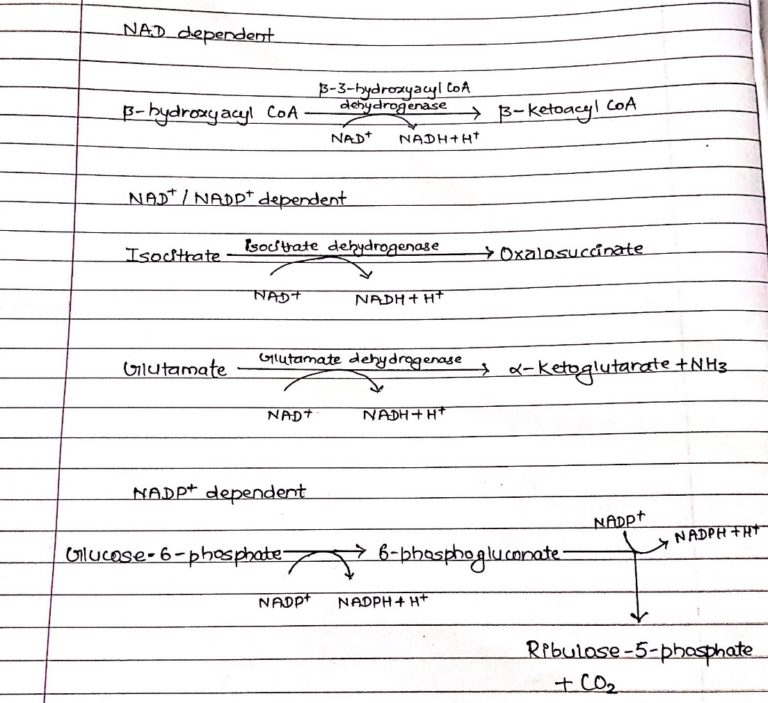 NAD dependent
β-3-hydroxyacyl CoA
dehydrogenase
β-hydroxyacyl CoA → β-ketoacyl CoA
NAD⁺ NADH+H⁺
NAD⁺ / NADP⁺ dependent
Isocitrate dehydrogenase
Isocitrate → Oxalosuccinate
NAD+ NADH + H⁺
Glutamate dehydrogenase
Glutamate → α-ketoglutarate + NH3
NAD+ NADH+H⁺
NADP⁺ dependent
NADP⁺ NADPH +H⁺
Glucose-6-phosphate → 6-phosphogluconate
NADP⁺ NADPH + H⁺
Ribulose-5-phosphate
+ CO₂